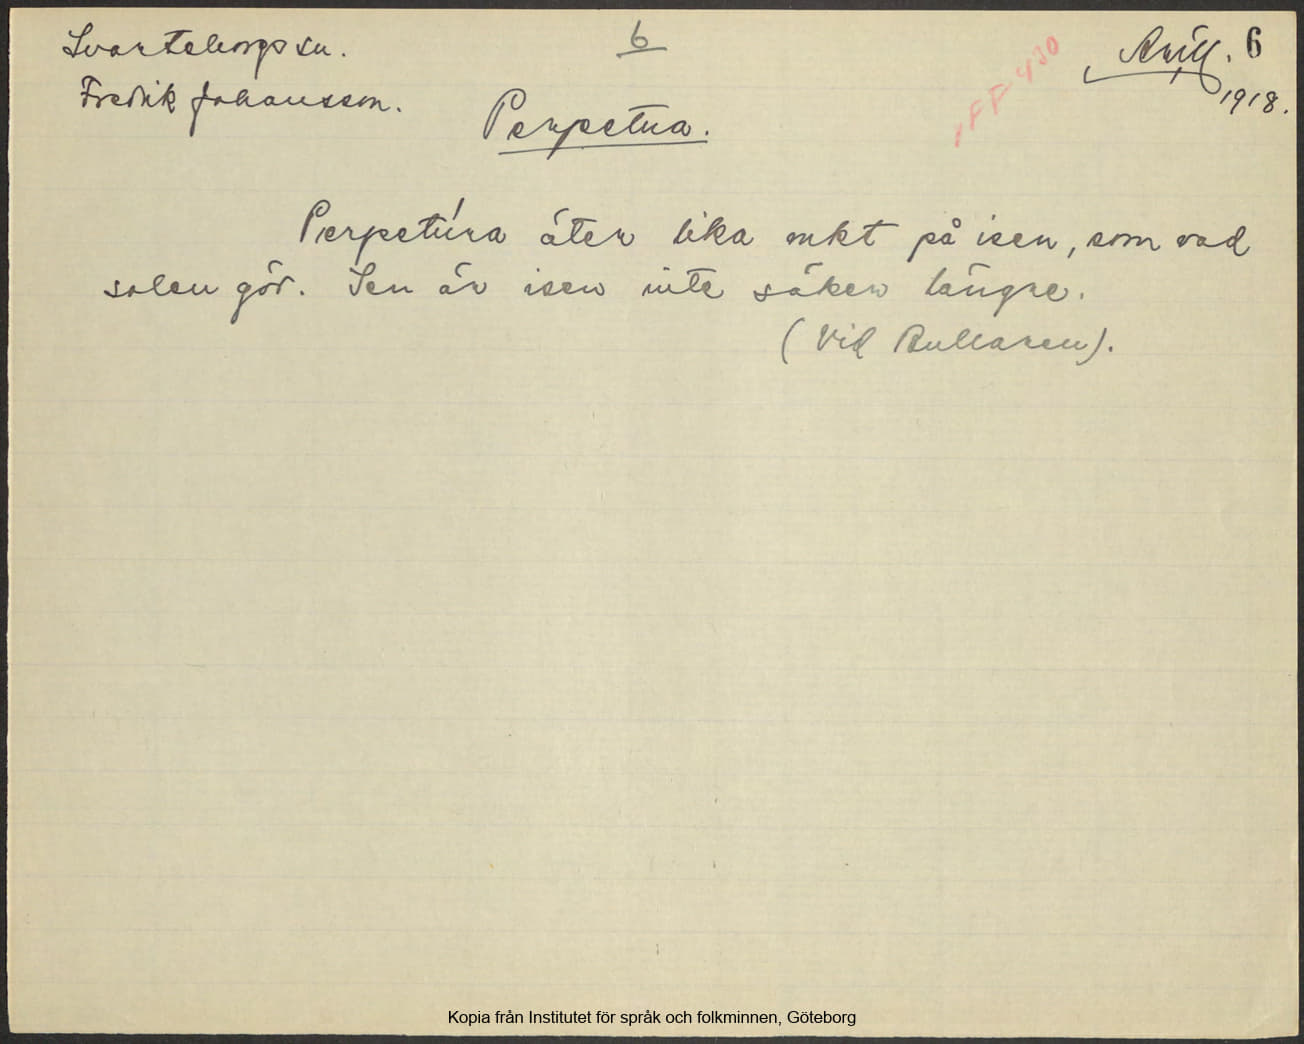 Svarteborgs sn.
6
Arill. 6
1918.
Fredrik Johansson.
IFF 430
Perpetua.
Perpetúra äter lika mkt på isen, som vad
solen gör. Sen är isen inte säker längre.
(Vid Bullaren).
Kopia från Institutet för språk och folkminnen, Göteborg